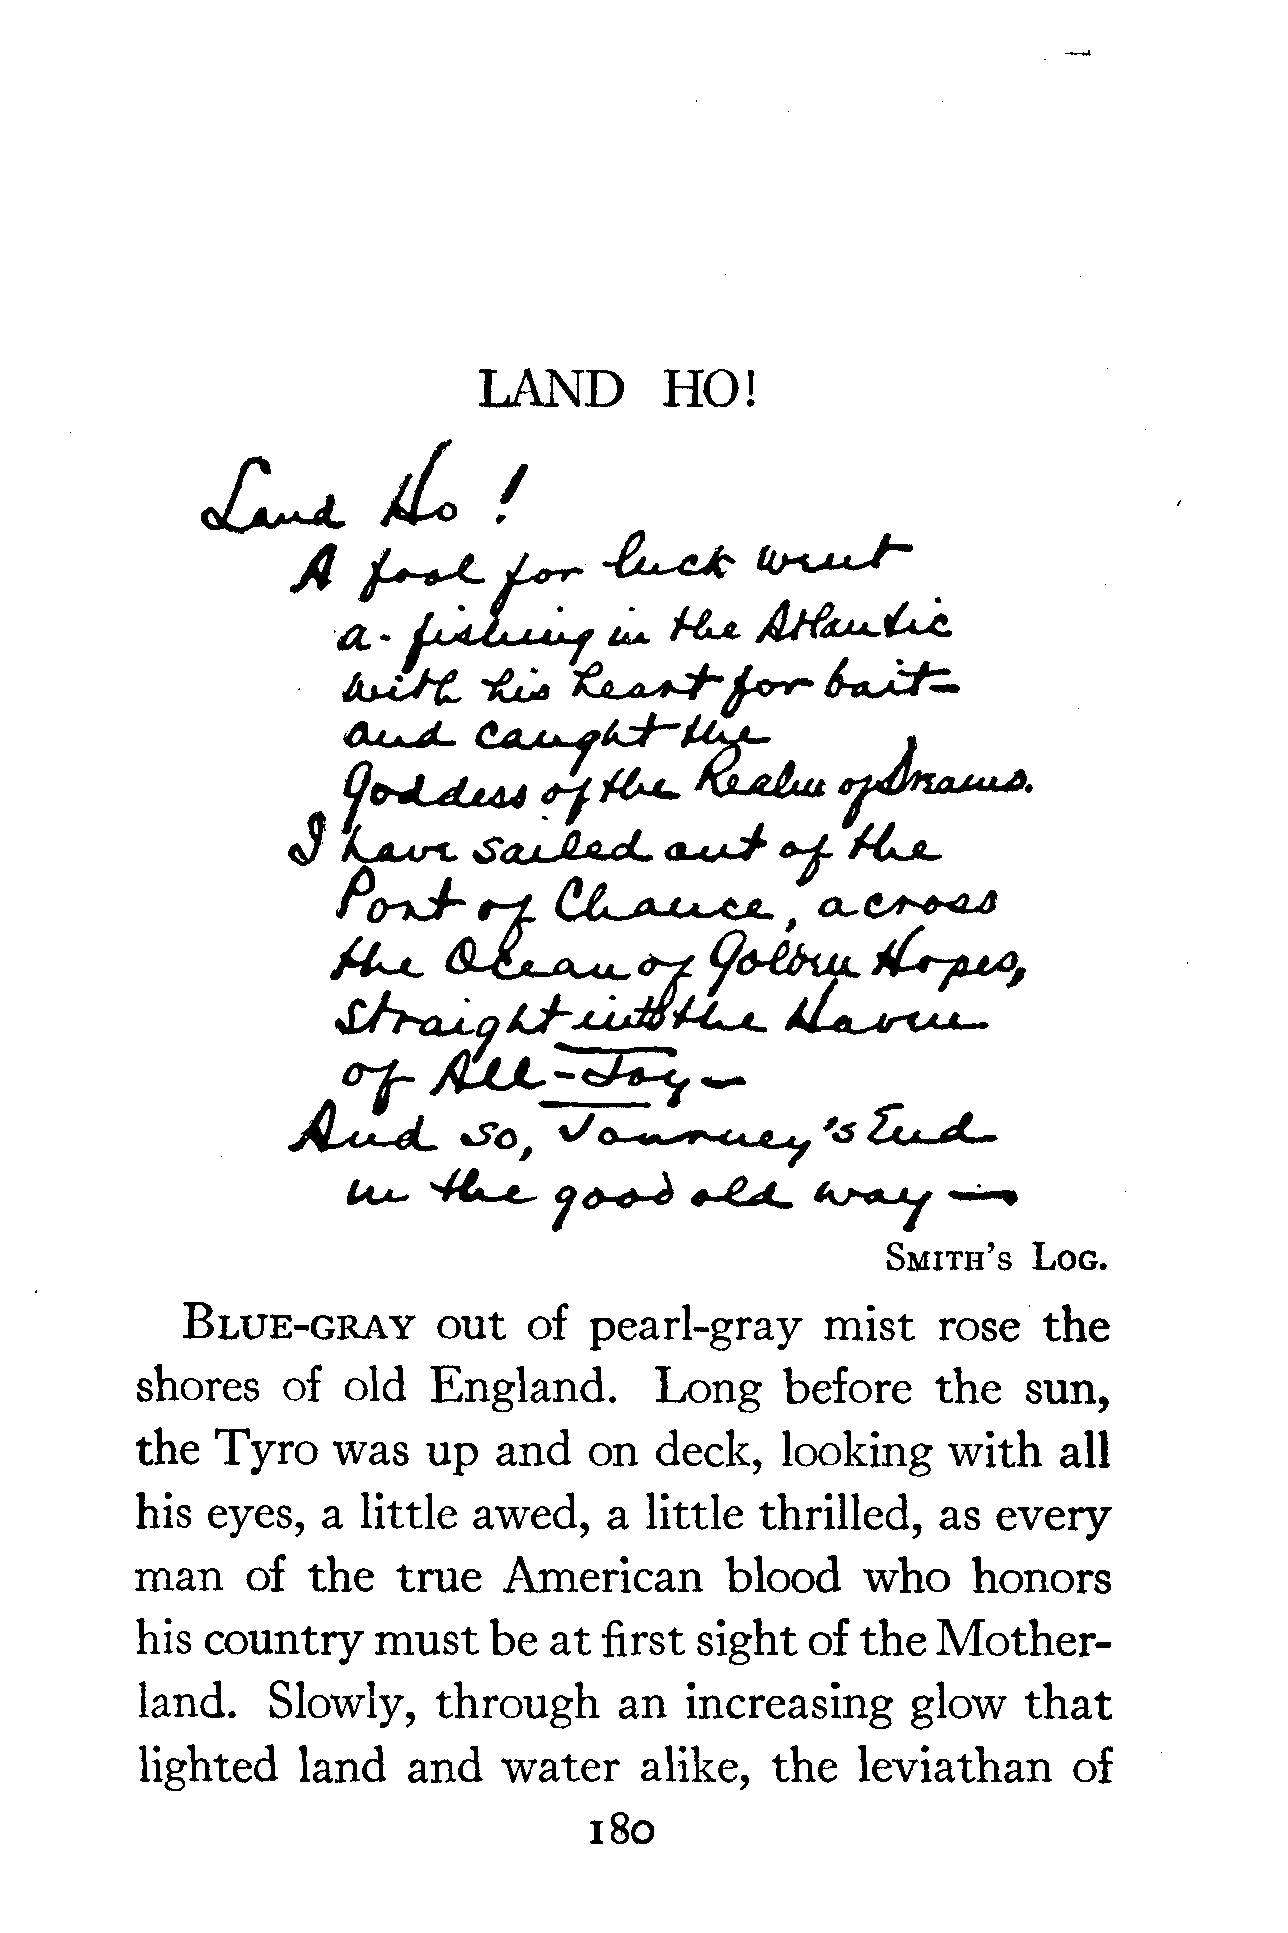 LAND HO!
Land Ho!
A fool for luck went
a-fishing in the Atlantic
with his heart for bait—
and caught the
Goddess of the Realm of Dreams.
I have sailed out of the
Port of Chance, across
the Ocean of Golden Hopes,
straight into the Haven
of All-Joy—
And so, Journey's End
in the good old way—
SMITH'S LOG.
BLUE-GRAY out of pearl-gray mist rose the
shores of old England. Long before the sun,
the Tyro was up and on deck, looking with all
his eyes, a little awed, a little thrilled, as every
man of the true American blood who honors
his country must be at first sight of the Mother-
land. Slowly, through an increasing glow that
lighted land and water alike, the leviathan of
180